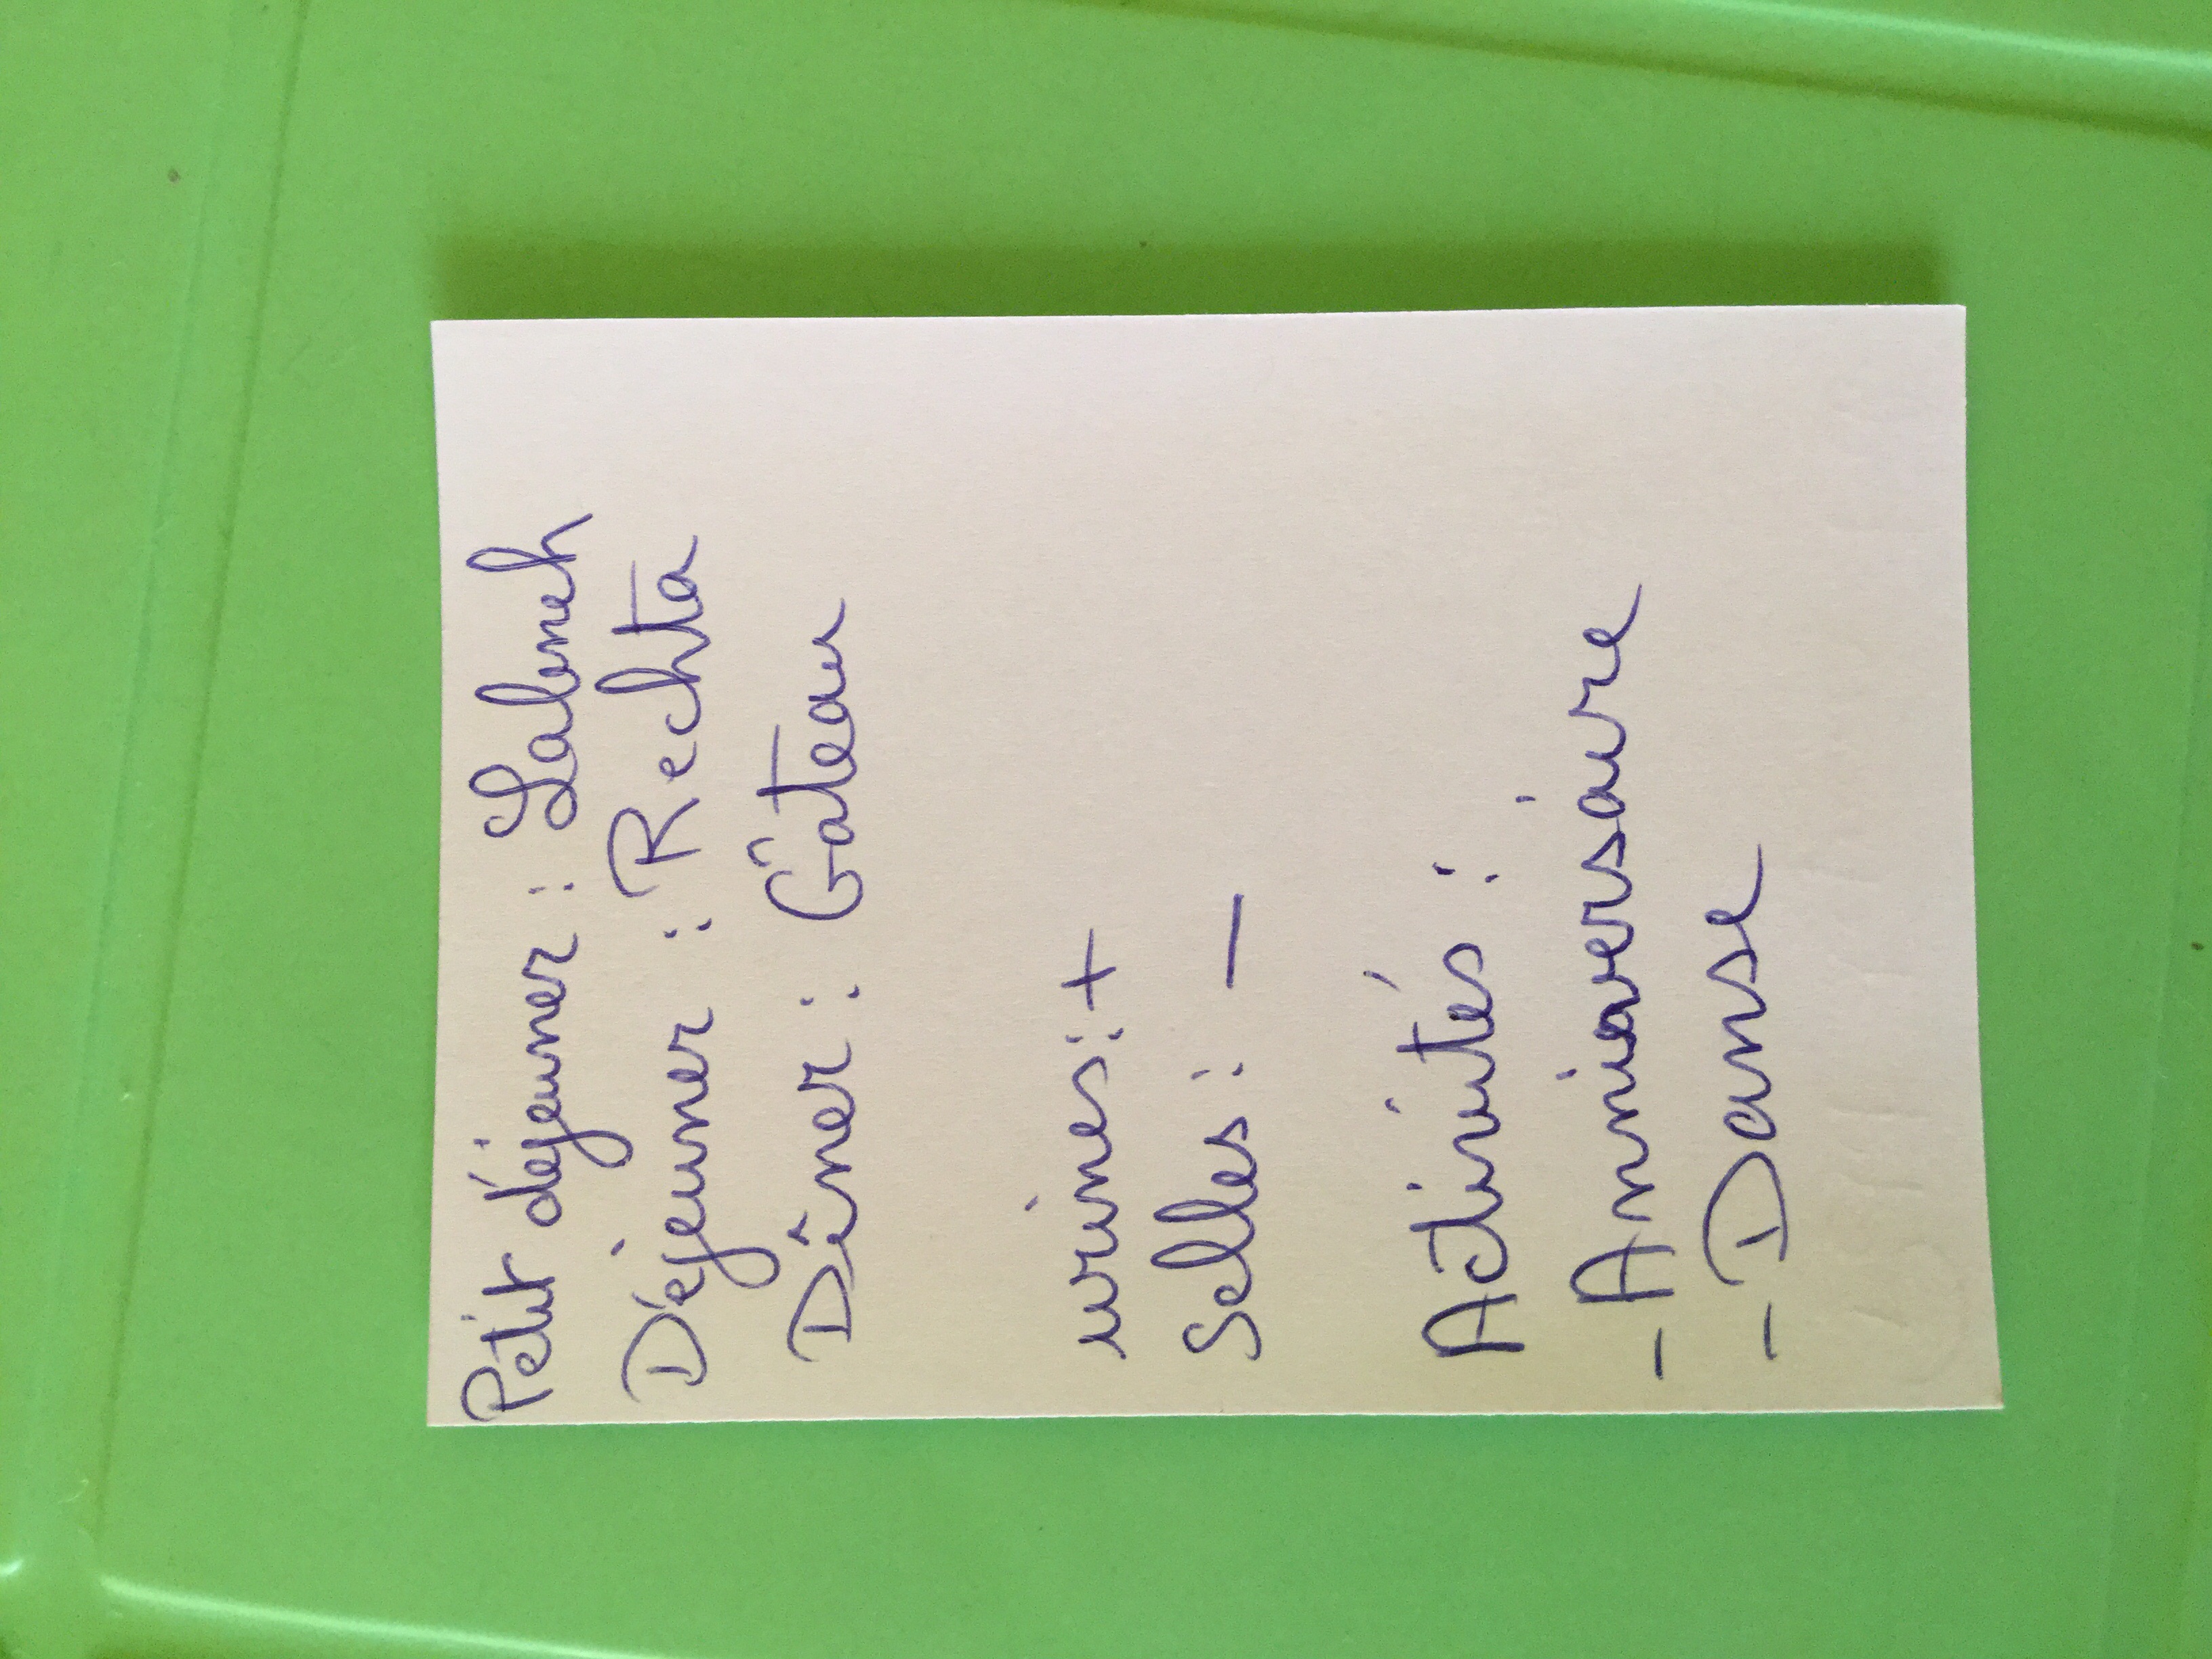 Petit déjeuner : Labneh
Déjeuner : Rechta
Dîner : Gâteau
urines : +
Selles : —
Activités :
- Anniversaire
- Danse